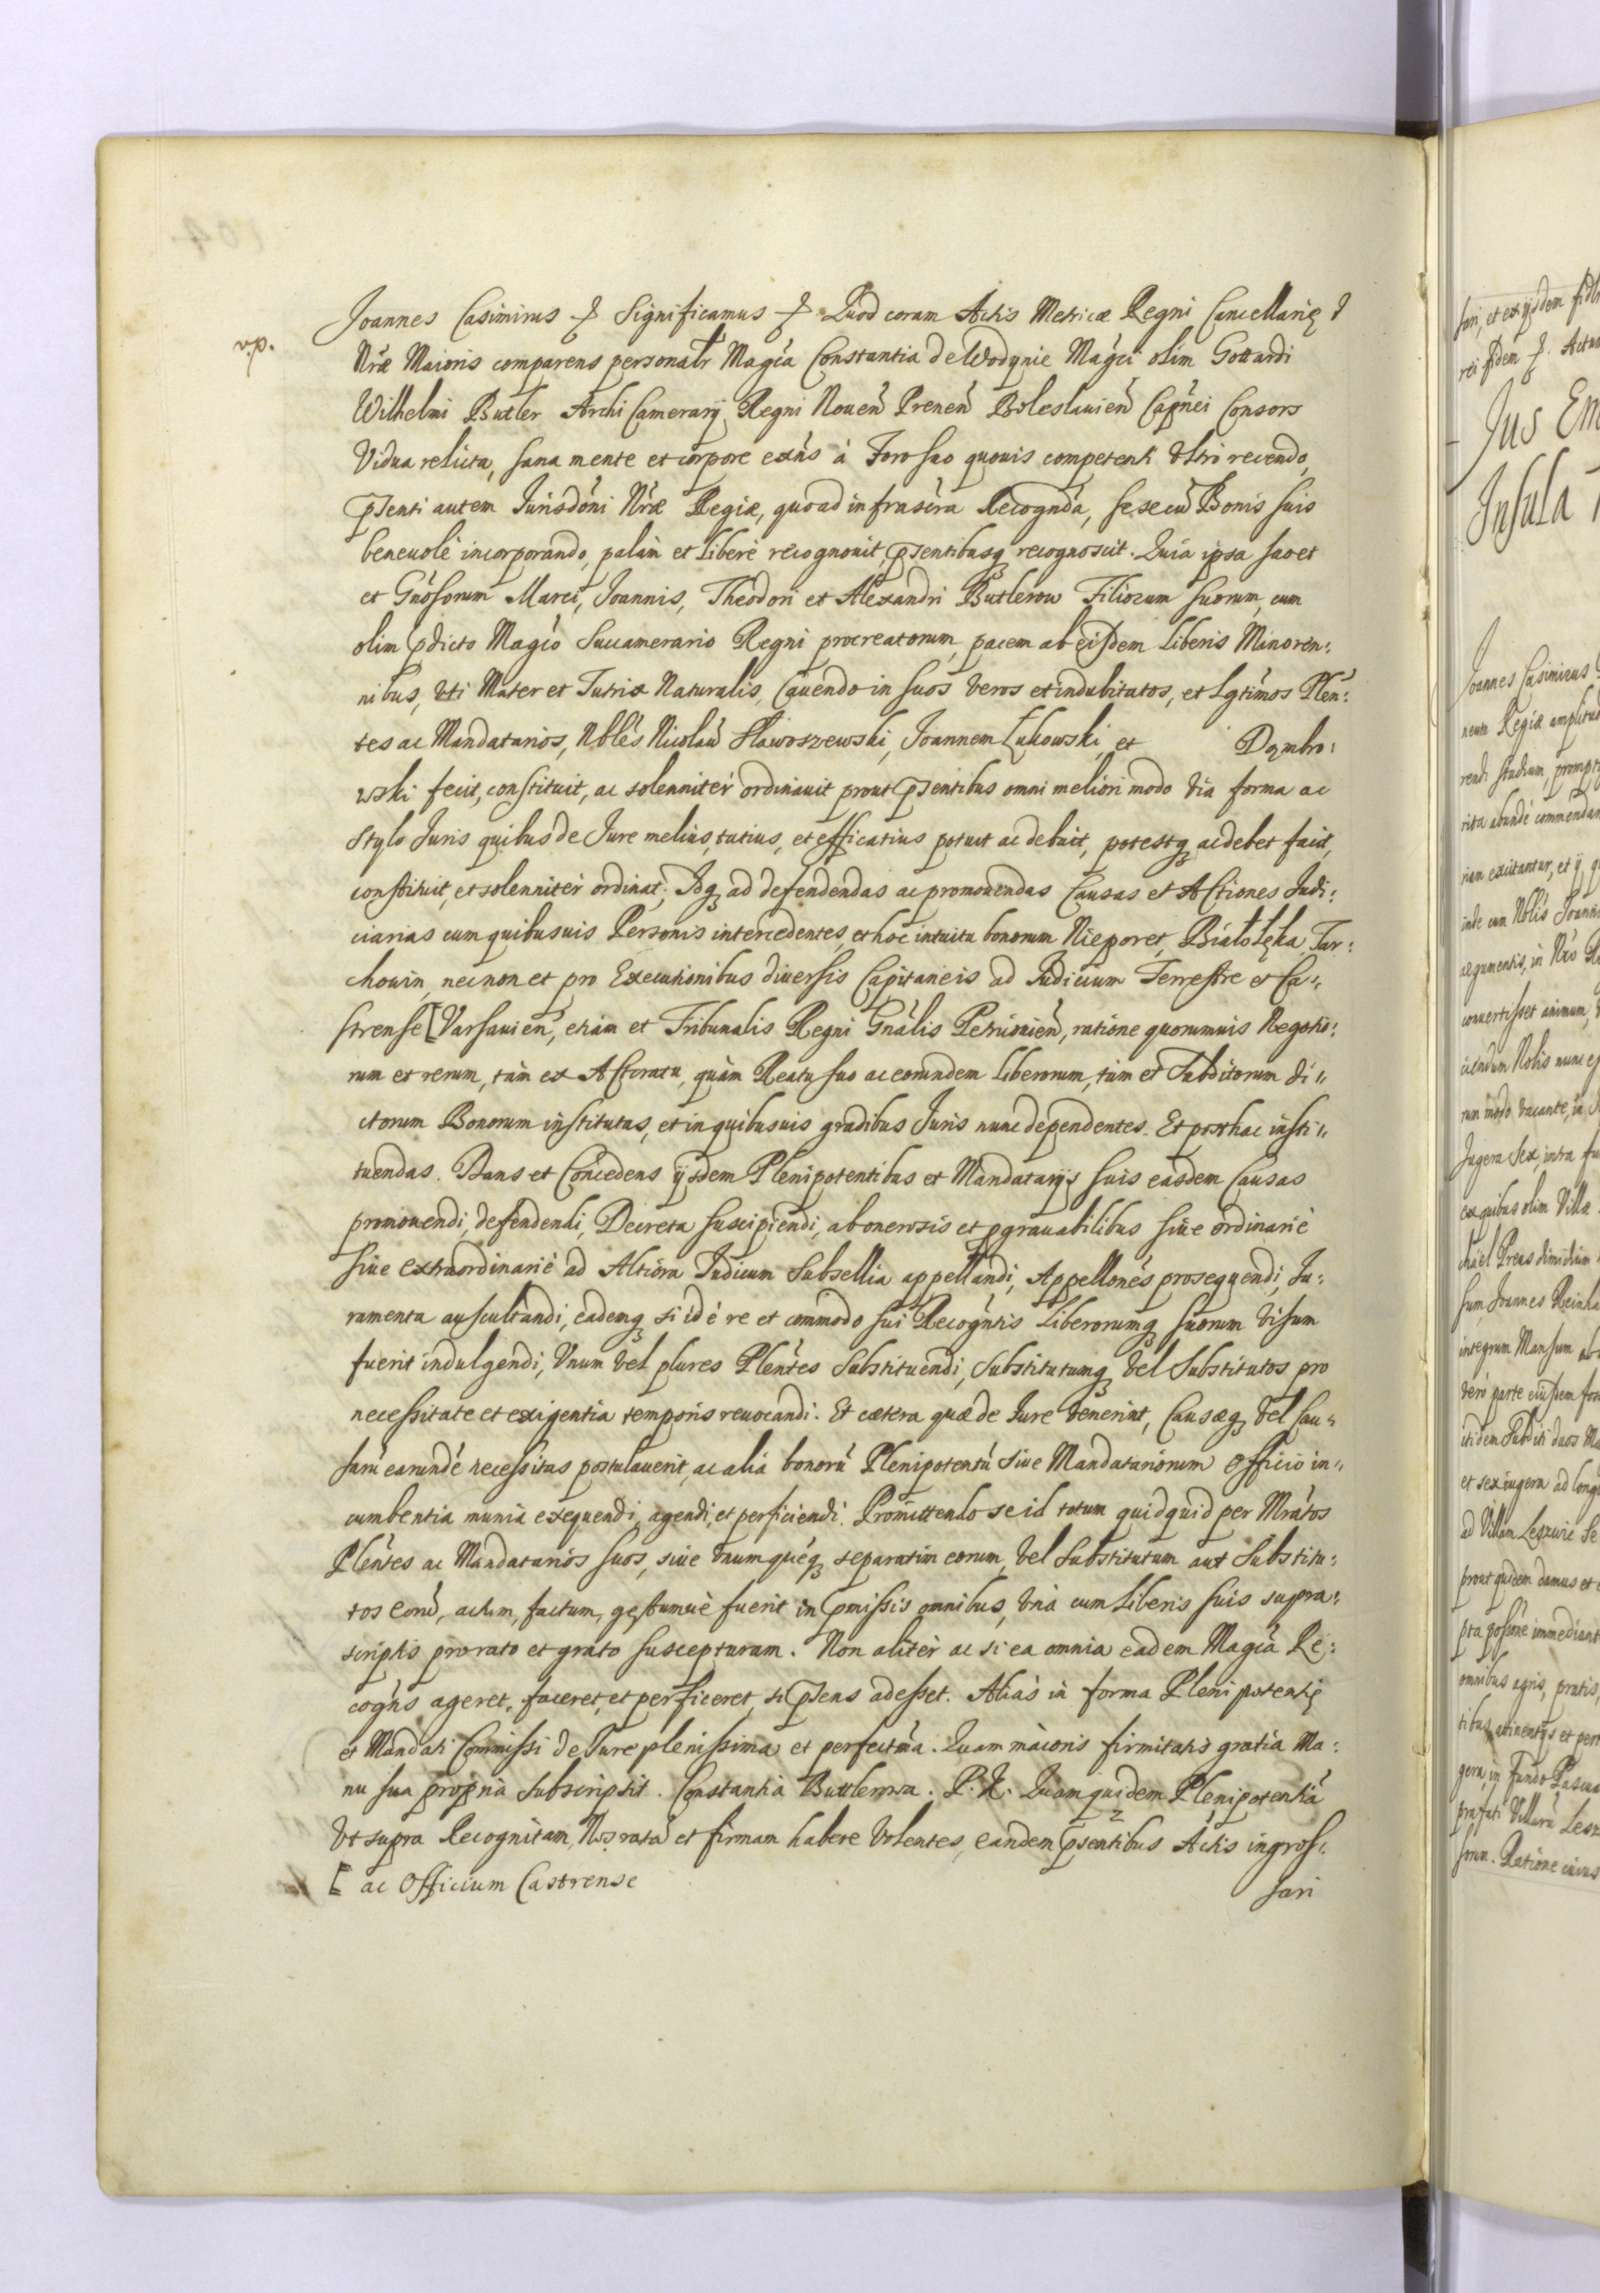 Joannes Casimirus & Significamus & Quod coram Actis Metricæ Regni Cancellarię
Nræ Maioris comparens personalr Magca Constantia de Wodynie Magci olim Gottardi
Wilhelmi Butler Archi Camerarij Regni Nouen Prenen Boleslauien Capnei Consors
Vidua relicta, sana mente et corpore exns à Foro suo quouis competenti Vltrò recendo,
pnsenti autem Jurisdoni Nræ Regiæ, quo ad infrascra Recognda, se se cu Bonis suis
beneuolè incorporando, palàm et liberè recognouit, psentibusq recognoscit. Quia ipsa suo et
et Gnosorum Marci, Joannis, Theodori et Alexandri Butlerow Filiorum suorum, cum
olim pdicto Magco Succamerario Regni procreatorum, pacem ab eisdem Liberis Minoren:
nibus, Vti Mater et Tutrix Naturalis, Cauendo in suos Veros et indubitatos, et Lgtimos Plen:
tes ac Mandatarios, Nbles Nicolau Sławoszewski, Joannem Łukowski, et Dąmbro:
wski fecit, constituit, ac solenniter ordinauit prout psentibus omni meliori modo Via forma ac
Stylo Juris quibus de Jure melius, tutius, et efficatius potuit ac debuit, potestq ac debet facit,
constituit, et solenniter ordinat; Idq ad defendendas ac promouendas Causas et Actiones Judi:
ciarias cum quibusuis Personis intercedentes, et hoc intuitu bonorum Nieporęt, Białołęka, Tar:
chomin, nec non et pro Executionibus diuersis Capitaneis ad Judicium Terrestre et Ca:
strense [Varsauien, etiam et Tribunalis Regni Gnalis Petricouien, ratione quorumuis Negotio:
rum et rerum, tàm ex Actoratu, quàm Reatu suo ac eorundem Liberorum, tùm et Subditorum di:
ctorum Bonorum institutas, et in quibusuis gradibus Juris nunc dependentes. Et posthac insti:
tuendas. Dans et Concedens ijsdem Plenipotentibus et Mandatarijs suis easdem Causas
promouendi, defendendi, Decreta suscipiendi, ab onerosis et pgrauabilibus siue ordinariè
siue extraordinariè ad Altiora Judicum Subsellia appellandi, Appellones prosequendi, Ju:
ramenta auscultandi, eademq si id è re et commodo sui Recogntis Liberorumq suorum Visum
fuerit indulgendi, Vnum Vel plures Plentes Substituendi, Substitutumq Vel Substitutos pro
necessitate et exigentia temporis reuocandi. Et cætera quæ de Jure Venerint, Causæq Vel Cau:
saru earunde necessitas postulauerit, ac alia bonoru Plenipotentu siue Mandatariorum Officio in:
cumbentia munia exequendi, agendi, et perficiendi. Promittendo se id totum quidquid per Mratos
Plentes ac Mandatarios suos, siue Vnumqueq separatim eorum, Vel Substitutum aut Substitu:
tos eoru, actum, factum, gestumuè fuerit in pmissis omnibus, Vnà cum Liberis suis supra:
scriptis pro rato et grato suscepturam. Non aliter ac si ea omnia eadem Magca Re:
cogns ageret, faceret, et perficeret, si psens adesset. Alias in forma Plenipotentię
et Mandati Commissi de Jure plenissima et perfectma. Quam maioris firmitatis gratia Ma:
nu sua propria Subscripsit. Constantia Buttlerowa. P. K. Quam quidem Plenipotentia
Vt supra Recognitam, Nos rata et firmam habere Volentes, eandem psentibus Actis ingros:
[ ac Officium Castrense
sari
sari, et ex ijsdem
rei fidem &. Actum
Jus
Insula
Joannes Casimirus
rendi studium,
inde cum Nblis Joannis
conuertisset animum,
Jugera Sex, intra
ex quibus olim Villæ
sum, Joannes
integrum Mansum
et sex iugera ad
ad Villam
prout quidem damus et
omnibus agris, pratis,
gera, in Fundo
præfati Villaru
sorum. Ratione cuius